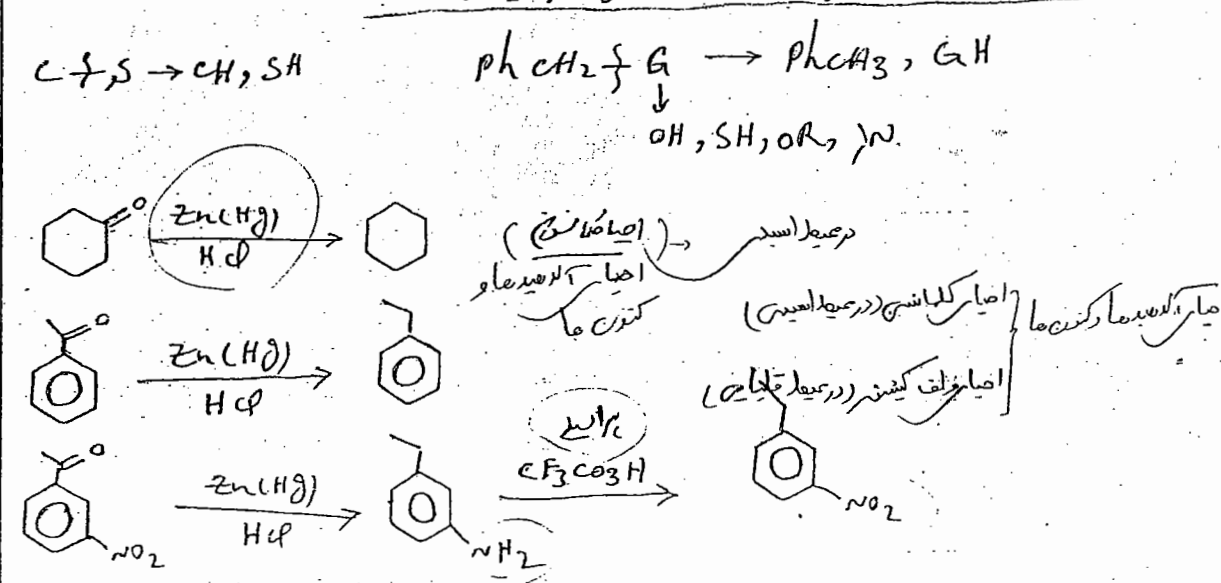 C⌇S → CH, SH
PhCH2⌇G → PhCH3, GH
↓
OH, SH, OR, ⟩N.
O
Zn(Hg)
HCl
(احیا کلمانسن) → در محیط اسید
احیا آلدهیدها و
کتون ها
احیا کلمانسن (در محیط اسیدی)
احیا ولف کیشنر (در محیط قلیایی)
احیا آلدهیدها و کتون ها
O
Zn(Hg)
HCl
O
NO2
Zn(Hg)
HCl
NH2
پراسید
CF3CO3H
NO2